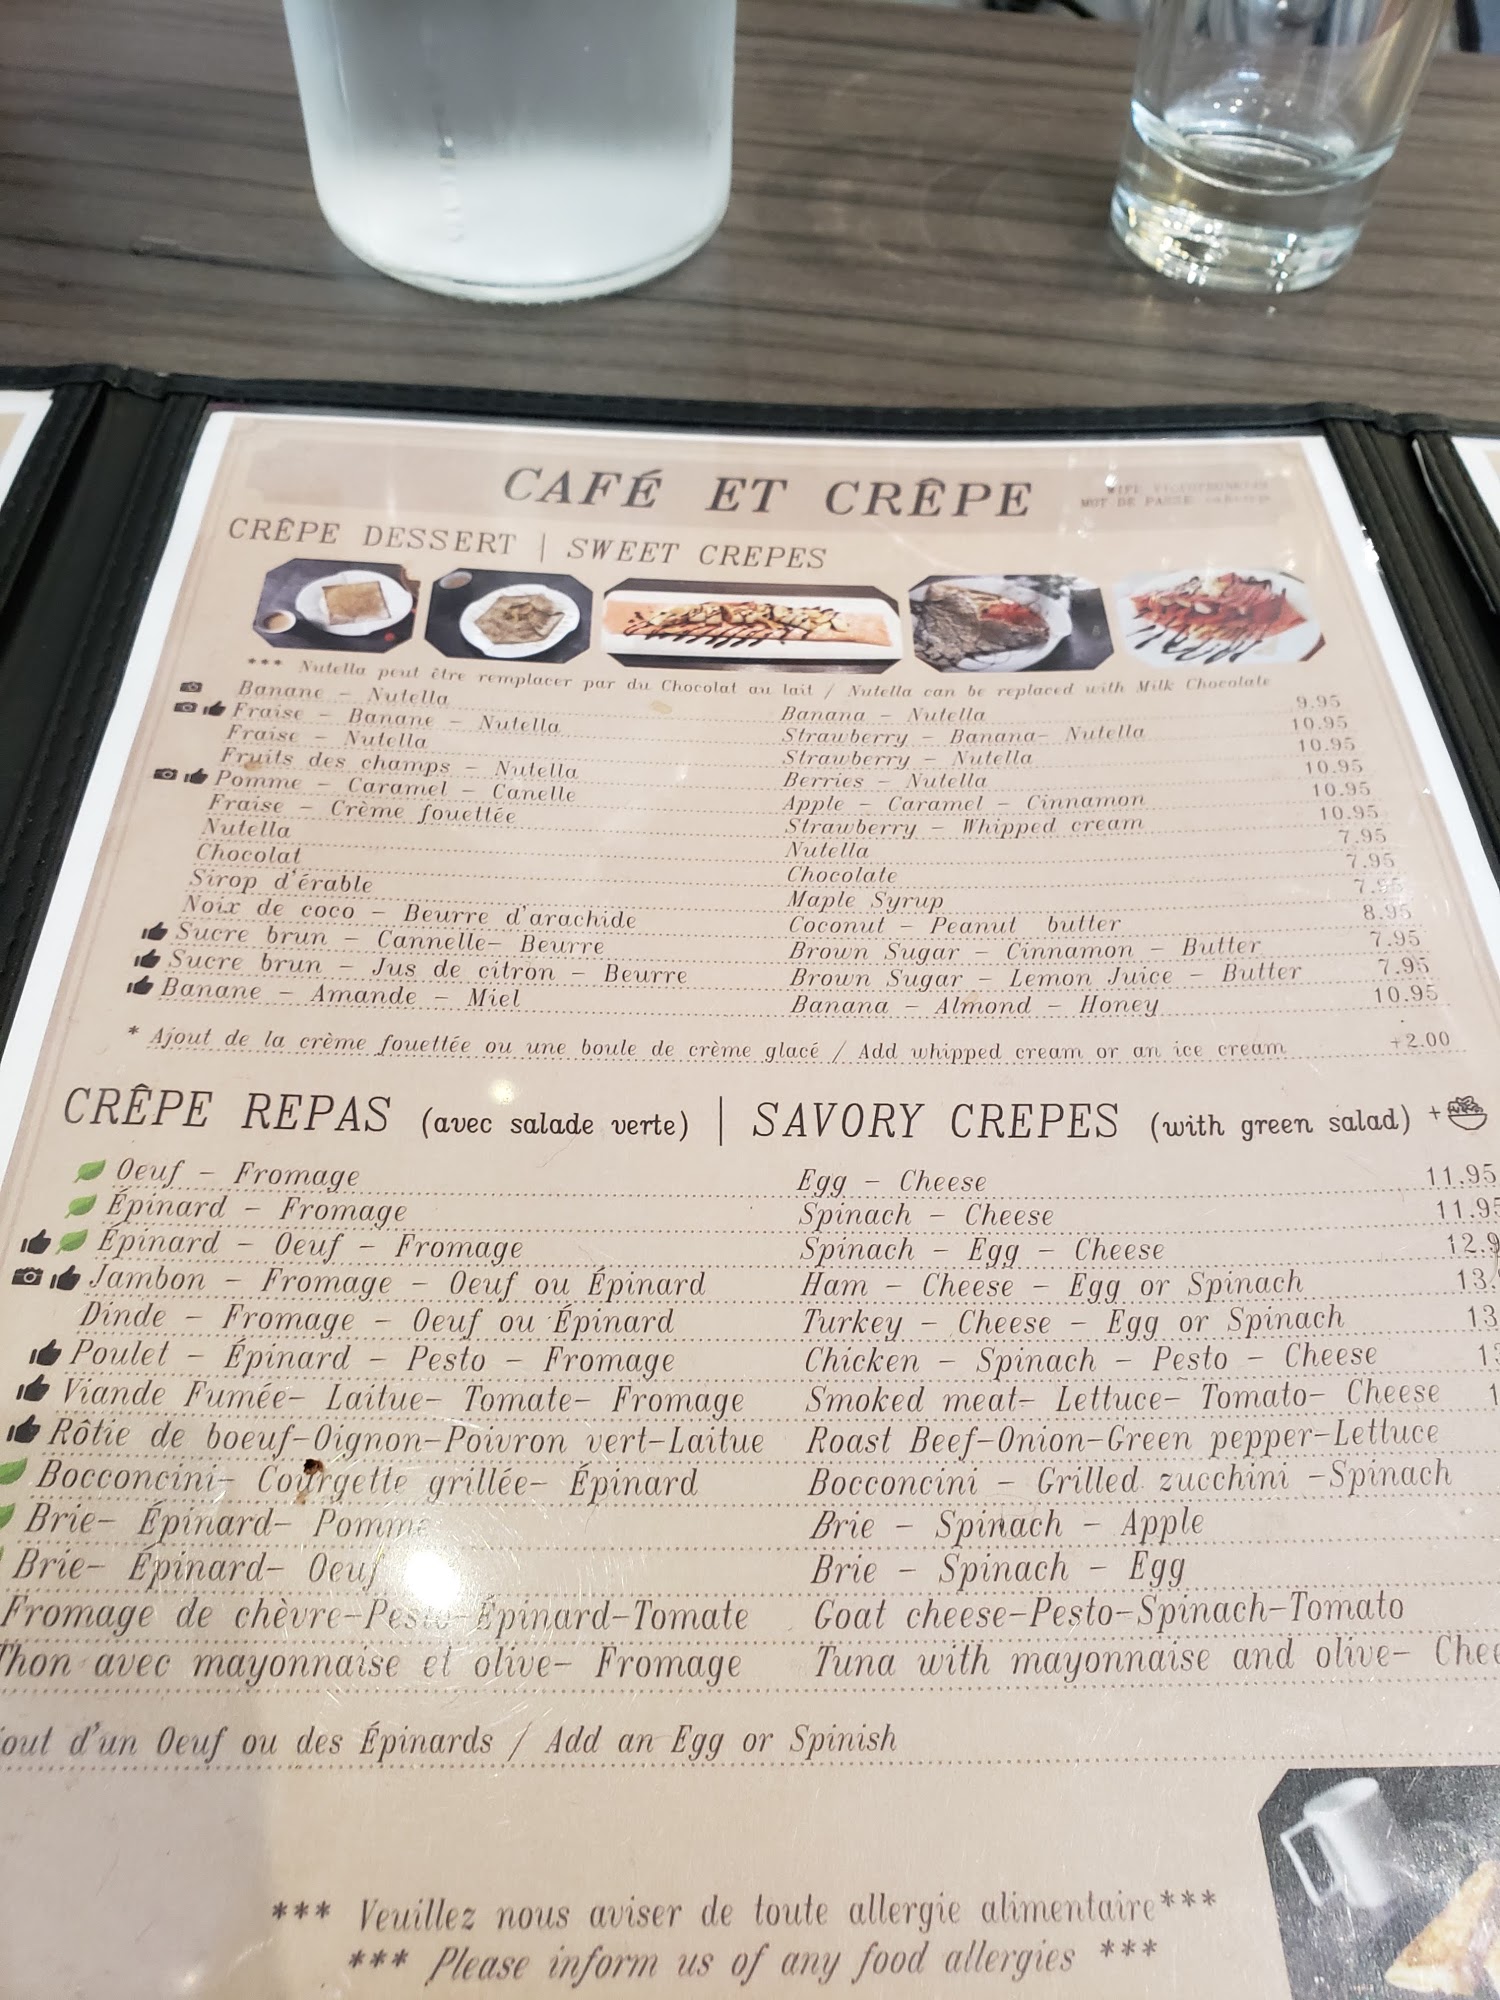 CAFÉ ET CRÊPE
MOT DE PASSE
CRÊPE DESSERT | SWEET CREPES
*** Nutella peut être remplacer par du Chocolat au lait / Nutella can be replaced with Milk Chocolate
Banane - Nutella Banana - Nutella 9.95
Fraise - Banane - Nutella Strawberry - Banana- Nutella 10.95
Fraise - Nutella Strawberry - Nutella 10.95
Fruits des champs - Nutella Berries - Nutella 10.95
Pomme - Caramel - Canelle Apple - Caramel - Cinnamon 10.95
Fraise - Crème fouettée Strawberry - Whipped cream 10.95
Nutella Nutella 7.95
Chocolat Chocolate 7.95
Sirop d'érable Maple Syrup 7.95
Noix de coco - Beurre d'arachide Coconut - Peanut butter 8.95
Sucre brun - Cannelle- Beurre Brown Sugar - Cinnamon - Butter 7.95
Sucre brun - Jus de citron - Beurre Brown Sugar - Lemon Juice - Butter 7.95
Banane - Amande - Miel Banana - Almond - Honey 10.95
* Ajout de la crème fouettée ou une boule de crème glacé / Add whipped cream or an ice cream +2.00
CRÊPE REPAS (avec salade verte) | SAVORY CREPES (with green salad) +
Oeuf - Fromage Egg - Cheese 11.95
Épinard - Fromage Spinach - Cheese 11.95
Épinard - Oeuf - Fromage Spinach - Egg - Cheese 12.9
Jambon - Fromage - Oeuf ou Épinard Ham - Cheese - Egg or Spinach 13.
Dinde - Fromage - Oeuf ou Épinard Turkey - Cheese - Egg or Spinach 13
Poulet - Épinard - Pesto - Fromage Chicken - Spinach - Pesto - Cheese 13
Viande Fumée- Laitue- Tomate- Fromage Smoked meat- Lettuce- Tomato- Cheese 1
Rôtie de boeuf-Oignon-Poivron vert-Laitue Roast Beef-Onion-Green pepper-Lettuce
Bocconcini- Courgette grillée- Épinard Bocconcini - Grilled zucchini -Spinach
Brie- Épinard- Pomme Brie - Spinach - Apple
Brie- Épinard- Oeuf Brie - Spinach - Egg
Fromage de chèvre-Pesto-Épinard-Tomate Goat cheese-Pesto-Spinach-Tomato
Thon avec mayonnaise et olive- Fromage Tuna with mayonnaise and olive- Chee
jout d'un Oeuf ou des Épinards / Add an Egg or Spinish
*** Veuillez nous aviser de toute allergie alimentaire***
*** Please inform us of any food allergies ***